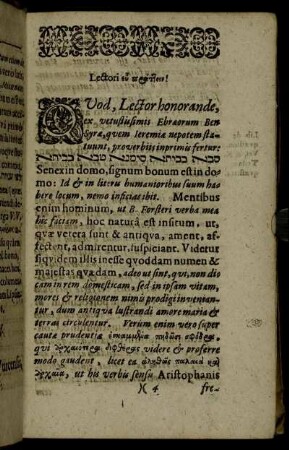 Lectori εὖ πράττειν!
QVod, Lector honorande,
ex vetustissimis Ebræorum Ben-
Syræ, quem Ieremiæ nepotem sta-
tuunt, proverbiis inprimis fertur:
סבא בביתא סימנא טבא בביתא
Senex in domo, signum bonum est in do-
mo: Id & in literis humanioribus suum ha-
bere locum, nemo inficias ibit. Mentibus
enim hominum, ut B. Forsteri verba mea
hîc faciam, hoc naturâ est insitum, ut,
quæ vetera sunt & antiqua, ament, af-
fectent, admirentur, suspiciant. Videtur
siquidem illis inesse quoddam numen &
majestas quædam, adeo ut sint, qui, non di-
cam in rem domesticam, sed in ipsam vitam,
mores & religionem nimis prodigi invenian-
tur, dum antiqua lustrandi amore maria &
terras circulentur. Verùm enim vero super
cauta prudentia
qui videre & proferre
modo gaudent, licet ea ἀληθῶς παλαιὰ καὶ
ἀρχαῖα, ut his verbis sensu Aristophanis
)( 4 fre-